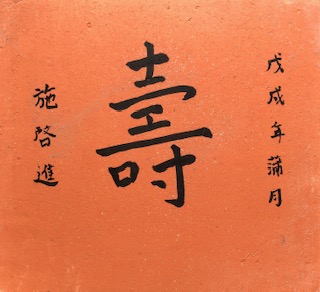 戊戌年蒲月
壽
施啓進